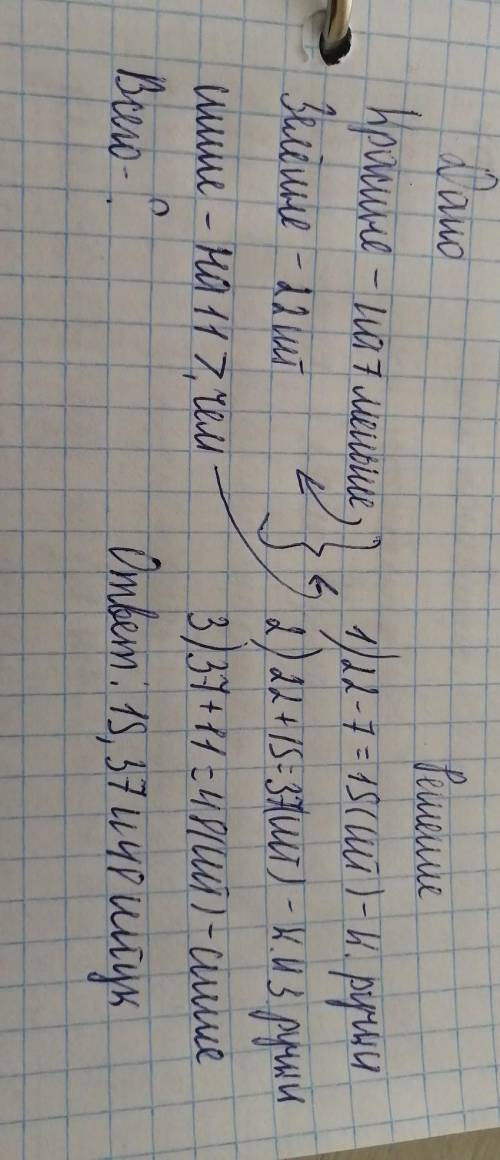 Дано
Красные - на 7 меньше
Зелёные - 22 шт
синие - на 11 >, чем
Всего - ?
Решение
1) 22 - 7 = 15 (шт) - к. ручки
2) 22 + 15 = 37 (шт) - к. и з ручки
3) 37 + 11 = 48 (шт) - синие
Ответ: 15, 37 и 48 штук